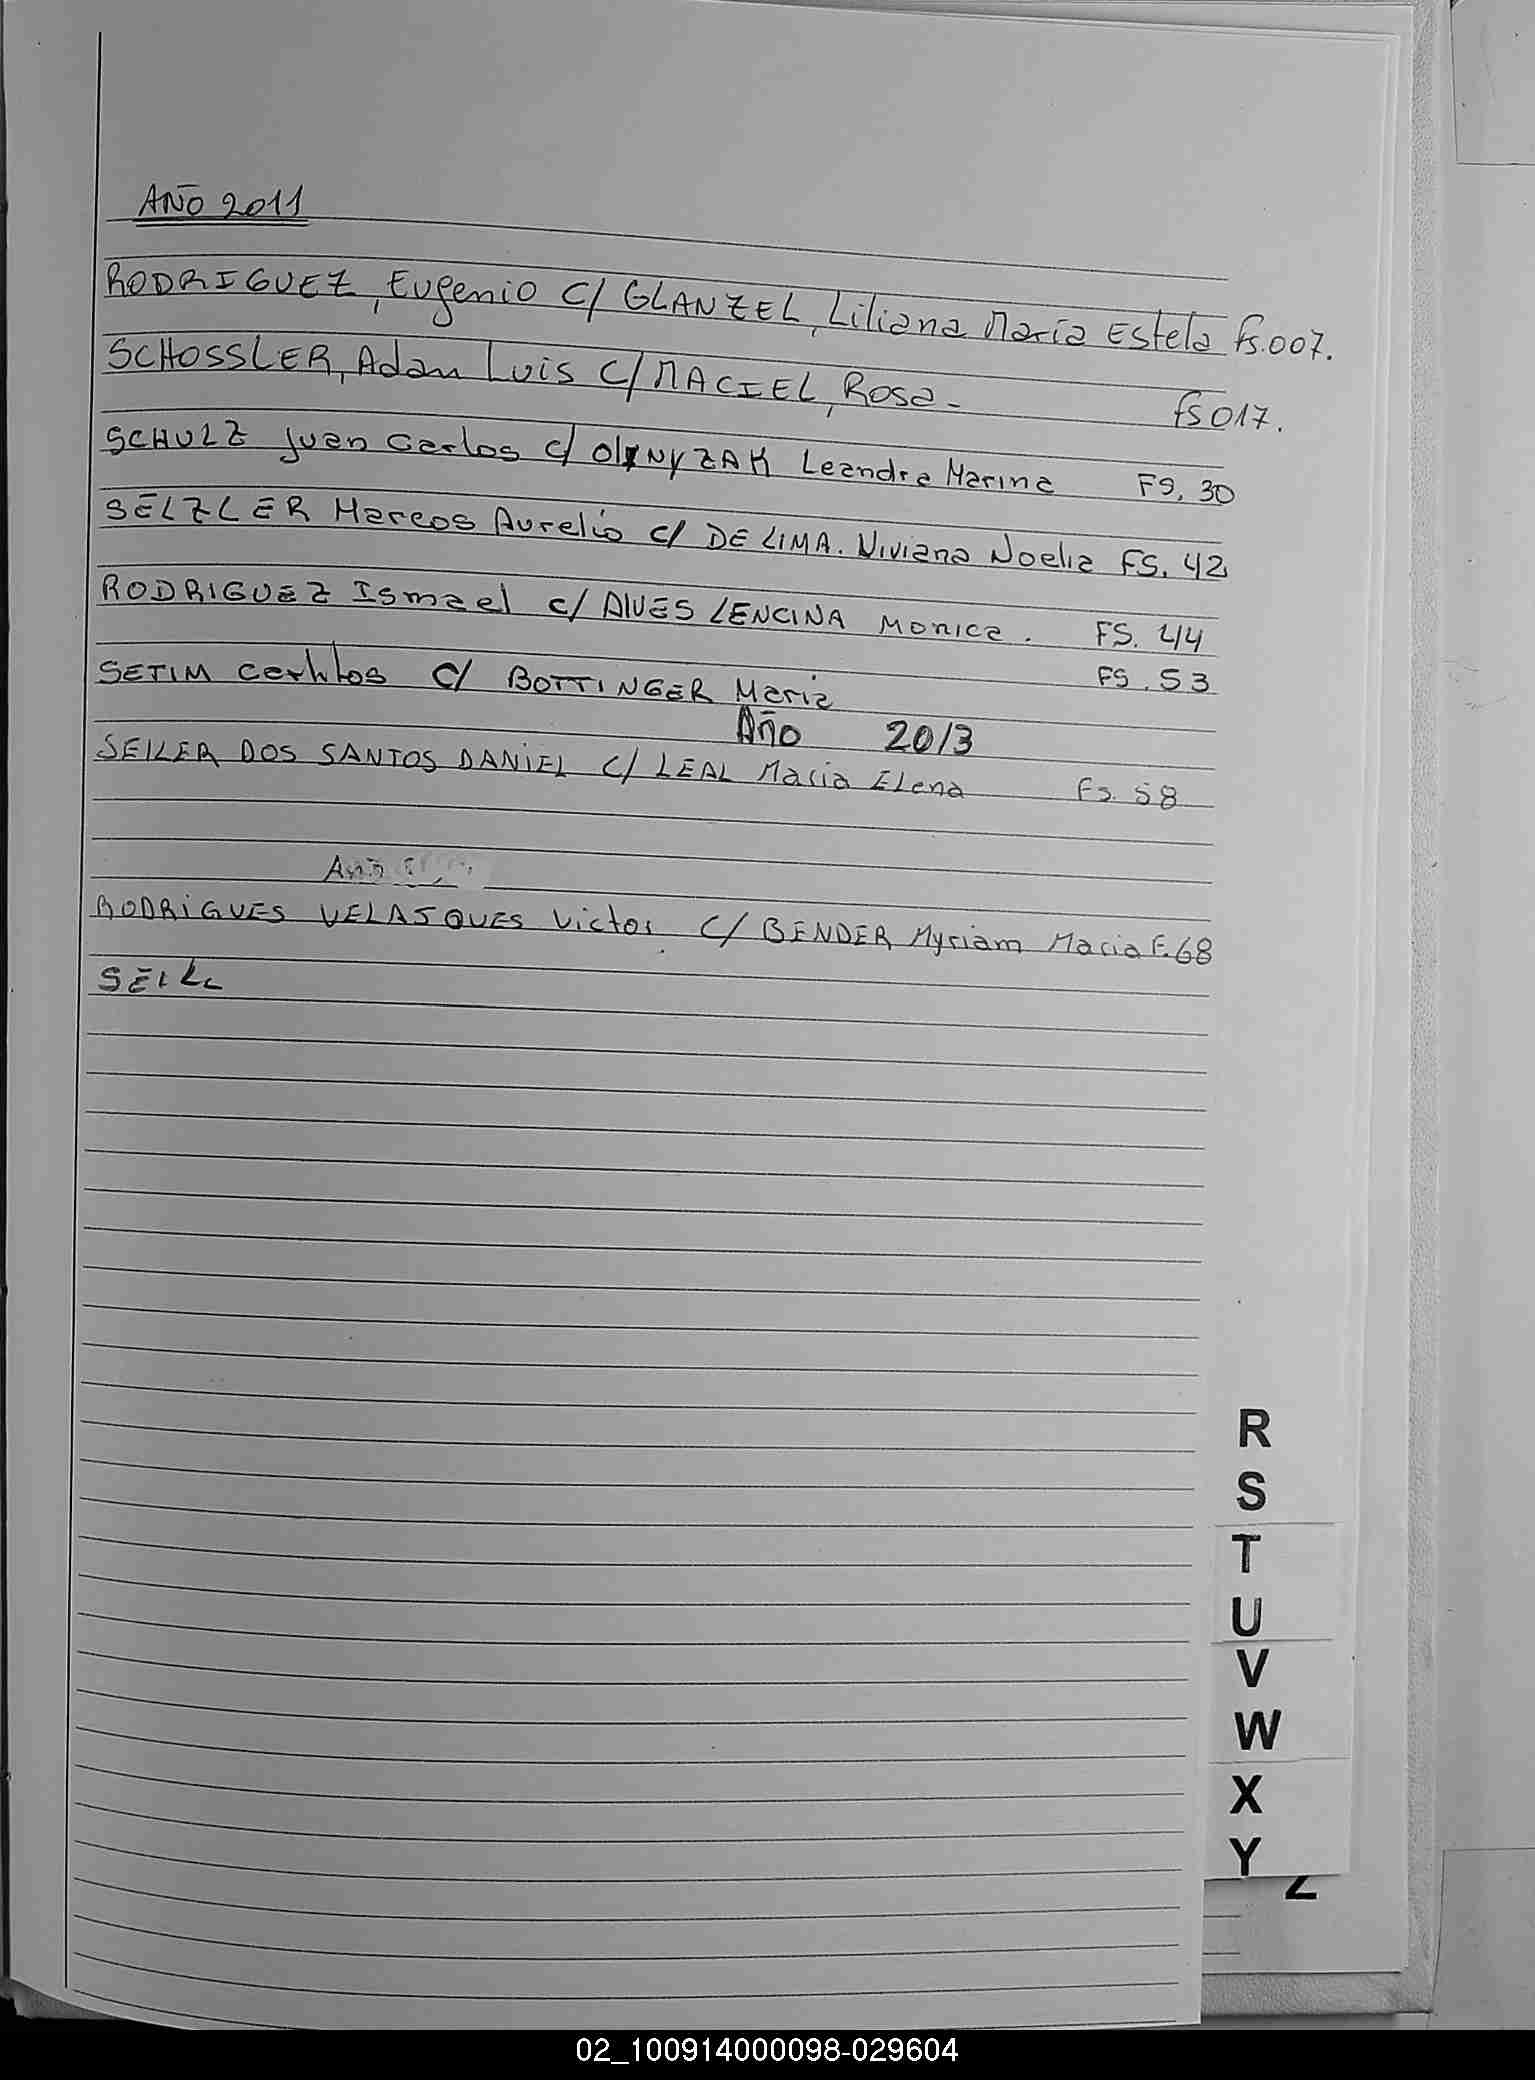 AÑO 2011
RODRIGUEZ, Eugenio C/ GLANZEL, Liliana María Estela fs.007.
SCHOSSLER, Adam Luis C/ MACIEL, Rosa- fs017.
SCHULZ Juan Carlos c/ OLYNYZAK Leandra Marina FS. 30
SELZLER Marcos Aurelio c/ DE LIMA. Viviana Noelia FS. 42
RODRIGUEZ Ismael c/ ALVES LENCINA Monica. FS. 44
SETIM c/ BOTTINGER Maria FS. 53
Año 2013
SEILER DOS SANTOS DANIEL C/ LEAL Maria Elena Fs. 58
Año
RODRIGUES VELASQUES Victor C/ BENDER Myriam Maria F. 68
SEIL
R
S
T
U
V
W
X
Y
Z
02_100914000098-029604